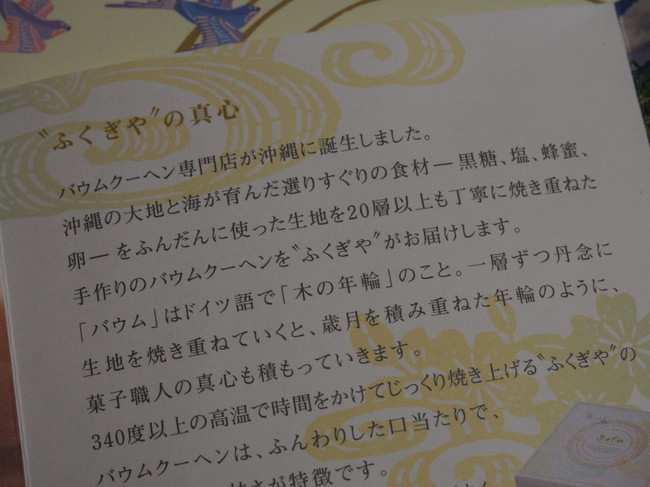 〝ふくぎや〞の真心
バウムクーヘン専門店が沖縄に誕生しました。
沖縄の大地と海が育んだ選りすぐりの食材―黒糖、塩、蜂蜜、
卵―をふんだんに使った生地を20層以上も丁寧に焼き重ねた
手作りのバウムクーヘンを〝ふくぎや〞がお届けします。
「バウム」はドイツ語で「木の年輪」のこと。一層ずつ丹念に
生地を焼き重ねていくと、歳月を積み重ねた年輪のように、
菓子職人の真心も積もっていきます。
340度以上の高温で時間をかけてじっくり焼き上げる〝ふくぎや〞の
バウムクーヘンは、ふんわりした口当たりで、
さが特徴です。
ふくぎや